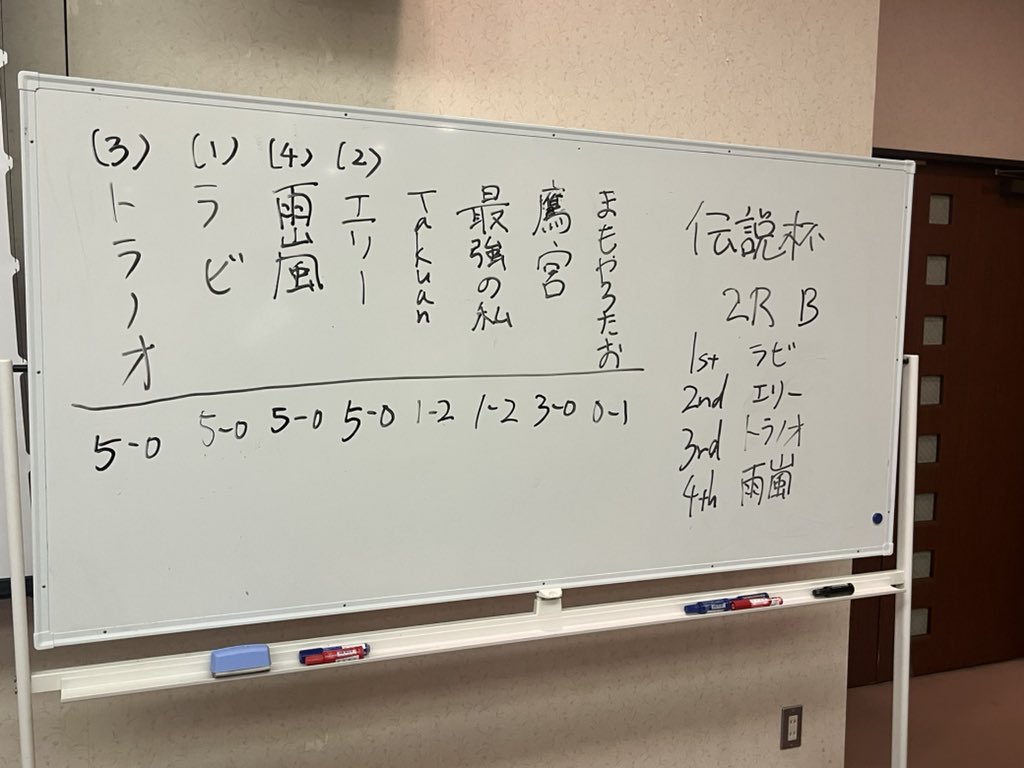 (3) (1) (4) (2)
トラノオ
ラビ
雨嵐
エリー
Takuan
最強の私
鷹宮
まもやろたお
5-0 5-0 5-0 5-0 1-2 1-2 3-0 0-1
伝説杯
2R B
1st ラビ
2nd エリー
3rd トラノオ
4th 雨嵐